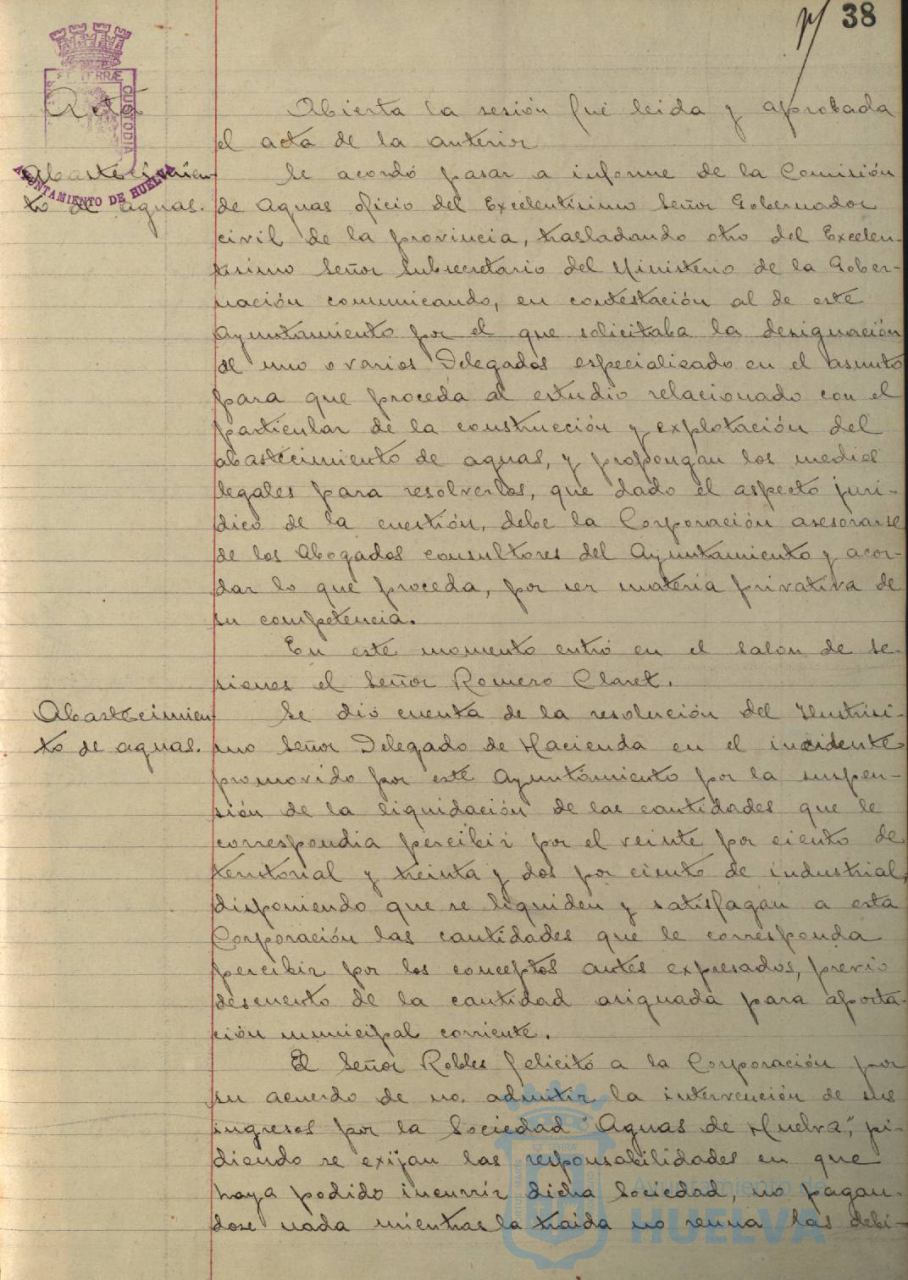 38
Acta
Abierta la sesión fué leida y aprobada
el acta de la anterior
Abastecimien-
to de aguas.
Se acordó pasar a informe de la Comisión
de Aguas oficio del Excelentísimo Señor Gobernador
civil de la provincia, trasladando otro del Excelen-
tísimo Señor Subsecretario del Ministerio de la Gober-
nación comunicando, en contestación al de este
Ayuntamiento por el que solicitaba la designación
de uno o varios Delegados especializado en el asunto
para que proceda al estudio relacionado con el
particular de la construcción y explotación del
abastecimiento de aguas, y propongan los medios
legales para resolverlos, que dado el aspecto jurí-
dico de la cuestión, debe la Corporación asesorarse
de los Abogados consultores del Ayuntamiento y acor-
dar lo que proceda, por ser materia privativa de
su competencia.
En este momento entró en el salón de se-
siones el Señor Romero Claret.
Abastecimien-
to de aguas.
Se dió cuenta de la resolución del Ilustrísi-
mo Señor Delegado de Hacienda en el incidente
promovido por este Ayuntamiento por la suspen-
sión de la liquidación de las cantidades que le
correspondia percibir por el veinte por ciento de
territorial y treinta y dos por ciento de industrial,
disponiendo que se liquiden y satisfagan a esta
Corporación las cantidades que le corresponda
percibir por los conceptos antes expresados, previo
descuento de la cantidad asignada para aporta-
ción municipal corriente.
El Señor Robles felicitó a la Corporación por
su acuerdo de no admitir la intervención de sus
ingresos por la Sociedad "Aguas de Huelva", pi-
diendo se exijan las responsabilidades en que
haya podido incurrir dicha Sociedad, no pagan-
dose nada mientras la traida no reuna las debi-
ET TERRAE
CUSTODIA
AYUNTAMIENTO DE HUELVA
Ayuntamiento de
HUELVA